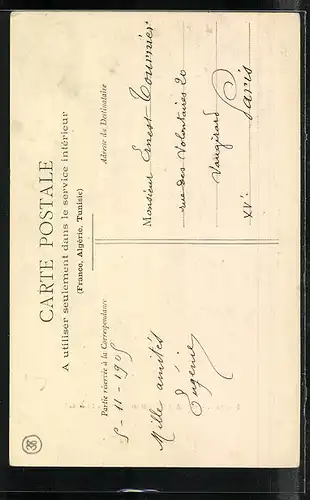 CARTE POSTALE
A utiliser seulement dans le service intérieur
(France, Algérie, Tunisie)
Partie réservée à la Correspondance
5-11-1905
Mille amitiés
Eugénie
Adresse du Destinataire
Monsieur Ernest Tournier
rue des Volontaires 20
Vaugirard
XVe Paris